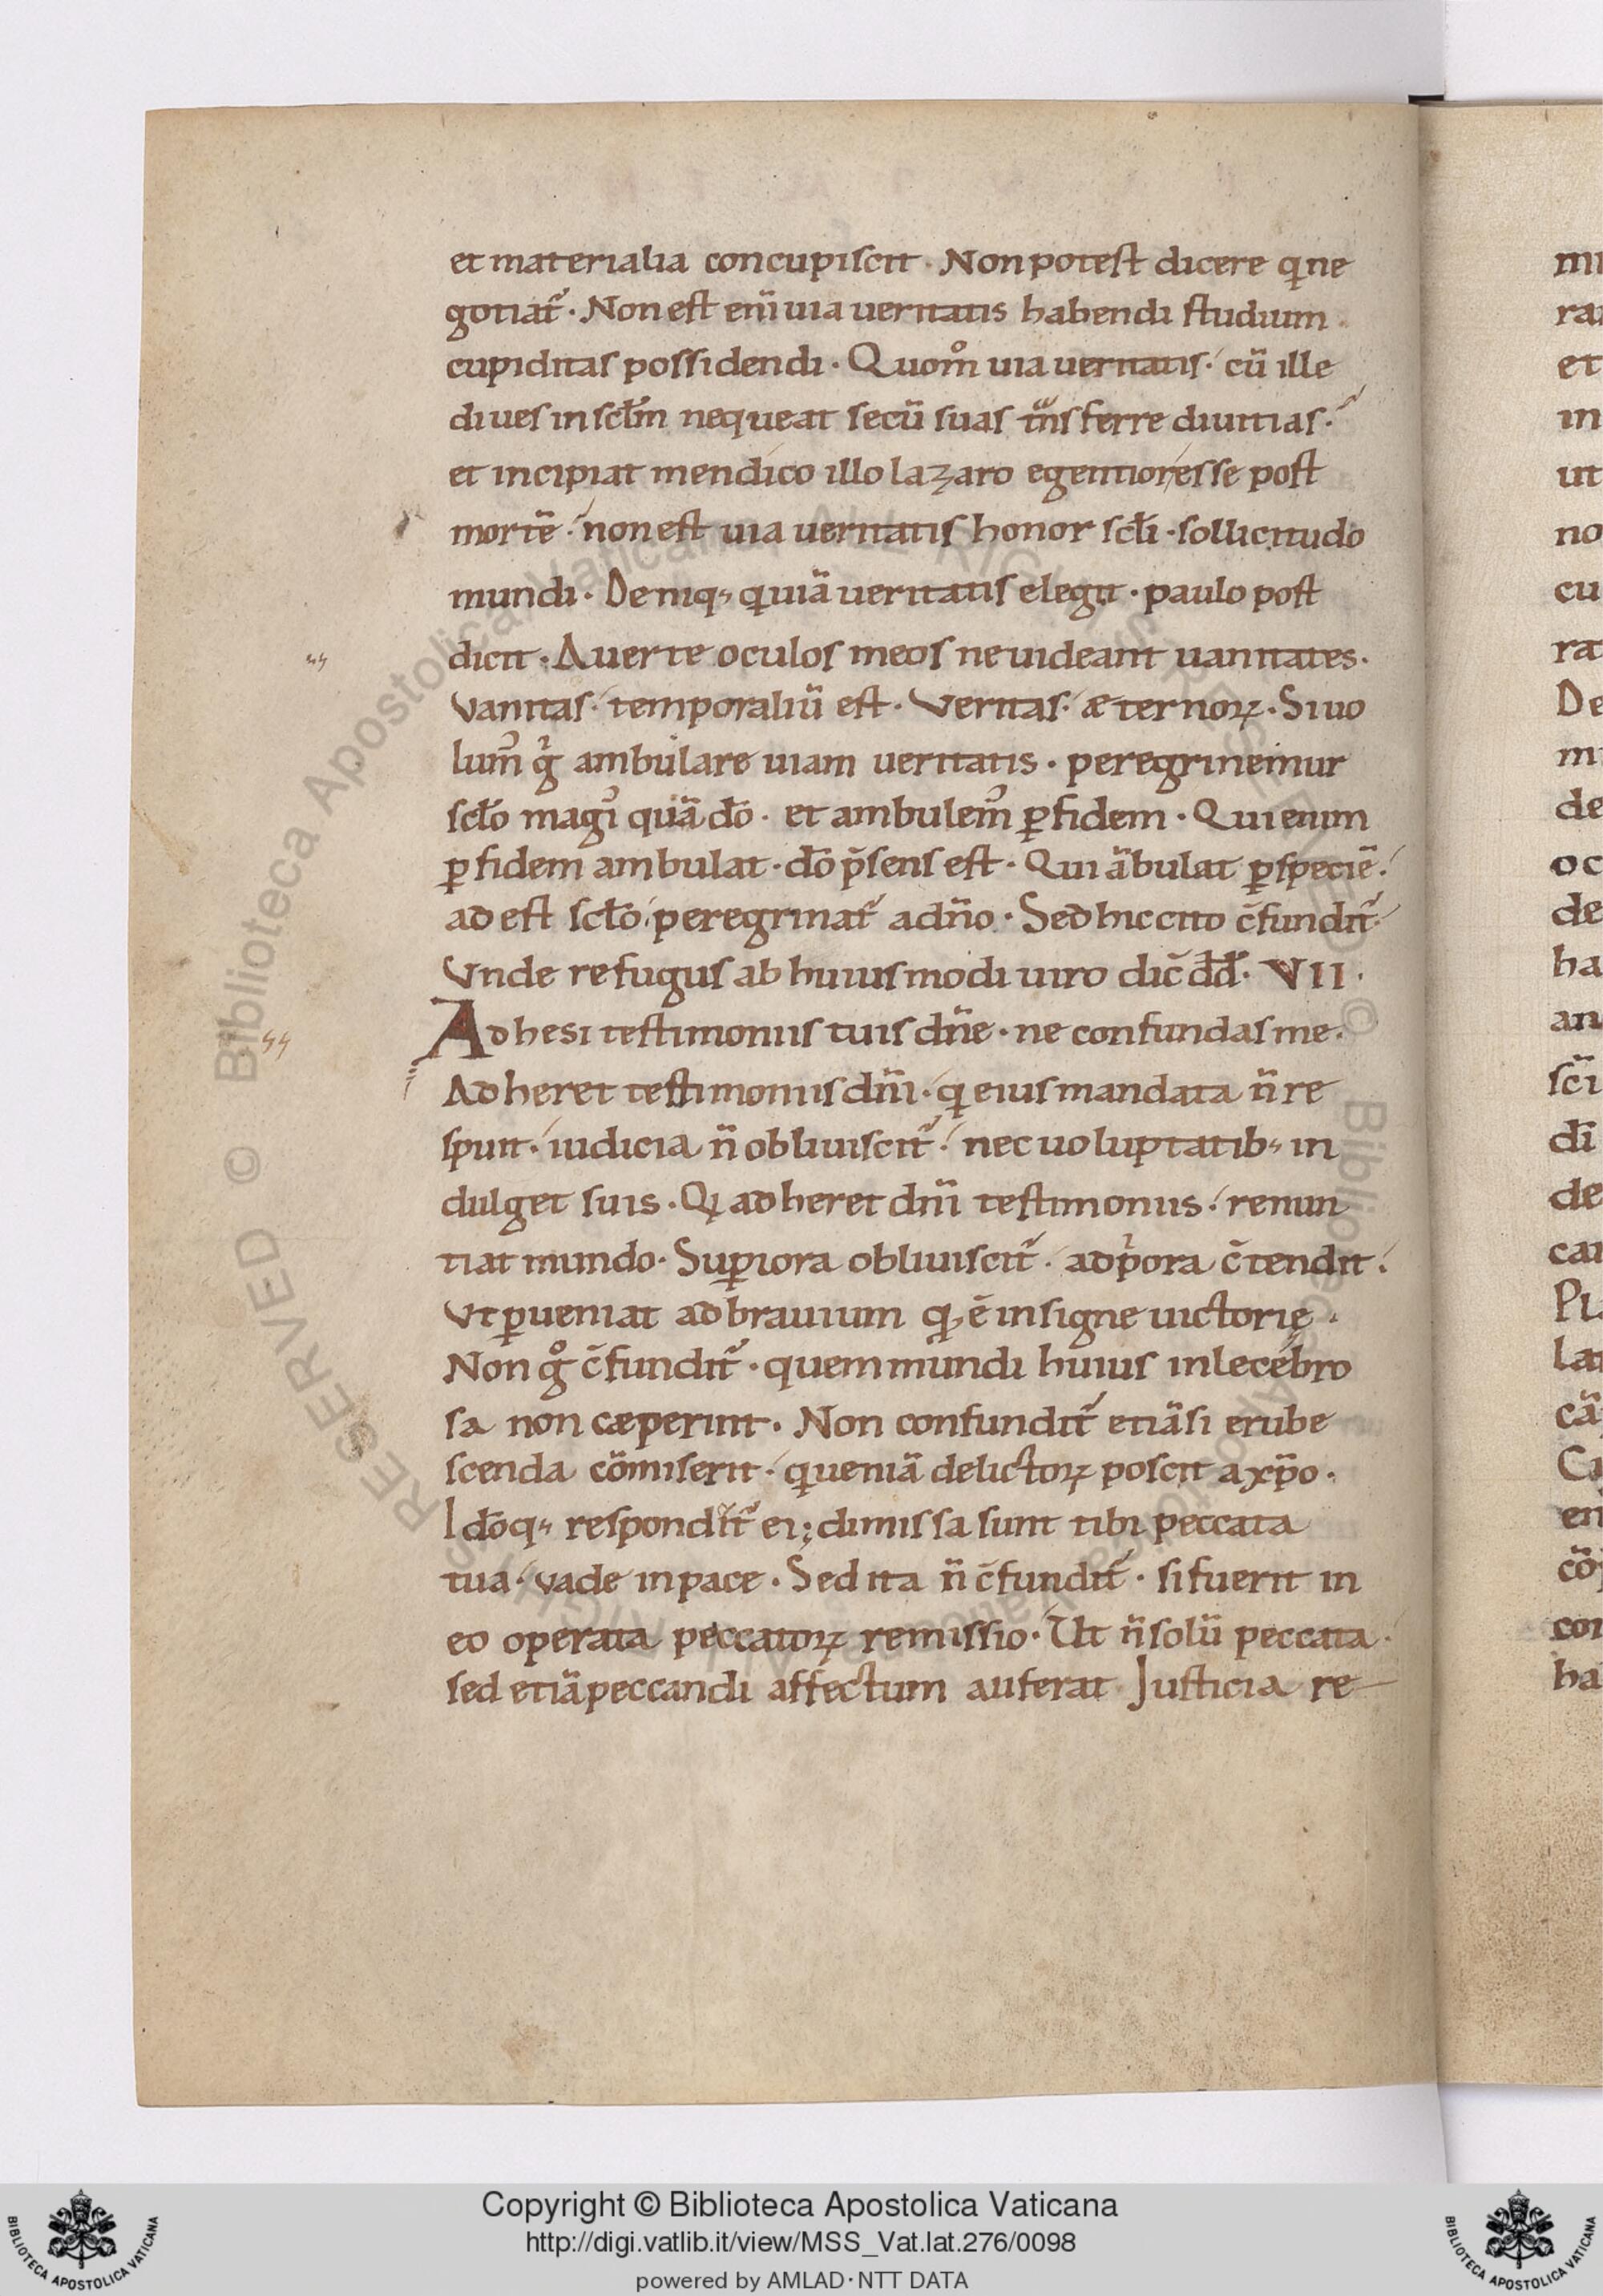 et materialia concupiscit · Non potest dicere q ne
gotiat᷑ · Non est eni̅ uia ueritatis habendi studium ·
cupiditas possidendi · Quom̊ uia ueritatis · cu̅ ille
diues in scl̅m nequeat secu̅ suas t̅nsferre diuitias ·
et incipiat mendico illo lazaro egentior esse post
morte̅ · non est uia ueritatis honor scl̅i · sollicitudo
mundi · Deniq; qui uia̅ ueritatis elegit · paulo post
dicit · Auerte oculos meos ne uideant uanitates ·
Vanitas · temporaliu̅ est · Veritas · æternoꝝ · Si uo
lum᷒ g̍ ambulare uiam ueritatis · peregrinemur
scl̅o magi᷒ qua̅ do̅ · et ambulem᷒ ꝑ fidem · Qui enim
ꝑ fidem ambulat · do̅ p̅sens est · Qui a̅bulat ꝑ specie̅ ·
adest scl̅o · peregrinat᷑ a dn̅o · Sed hic cito c̅fundit᷑ ·
Vnde refugus ab huiusmodi uiro dic̅ dd̅ · VII ·
Adhesi testimoniis tuis dn̅e · ne confundas me ·
Adheret testimoniis dn̅i · q eius mandata n̅ re
spuit · iudicia n̅ obliuiscit᷑ · nec uoluptatib; in
dulget suis · Qi adheret dn̅i testimoniis · renun
tiat mundo · Suꝑiora obliuiscit᷑ · ad p̍ora c̅tendit ·
Vt ꝑueniat ad brauium qꝫ e̅ insigne uictorie̜ ·
Non g̊ c̅fundit᷑ · quem mundi huius inlecebro
sa non cæperint · Non confundit᷑ etia̅ si erube
scenda co̅miserit · qui uenia̅ delictoꝝ poscit a xp̅o ·
Ido̅q; respondit᷑ ei ; dimissa sunt tibi peccata
tua · vade in pace · Sed ita n̅ c̅fundit᷑ · si fuerit in
eo operata peccatoꝝ remissio · Ut n̅ solu̅ peccata ·
sed etia̅ peccandi affectum auferat · Justicia re
Copyright © Biblioteca Apostolica Vaticana
http://digi.vatlib.it/view/MSS_Vat.lat.276/0098
powered by AMLAD·NTT DATA
BIBLIOTECA APOSTOLICA VATICANA
BIBLIOTECA APOSTOLICA VATICANA